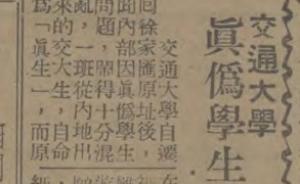 交通大學
眞僞學生
交通大學自遷
回徐家匯原址後，
聞內部因眞僞學生
問題，鬧得十分混
亂，一班從內地出
來的交大生，自命
爲「眞生」，而原